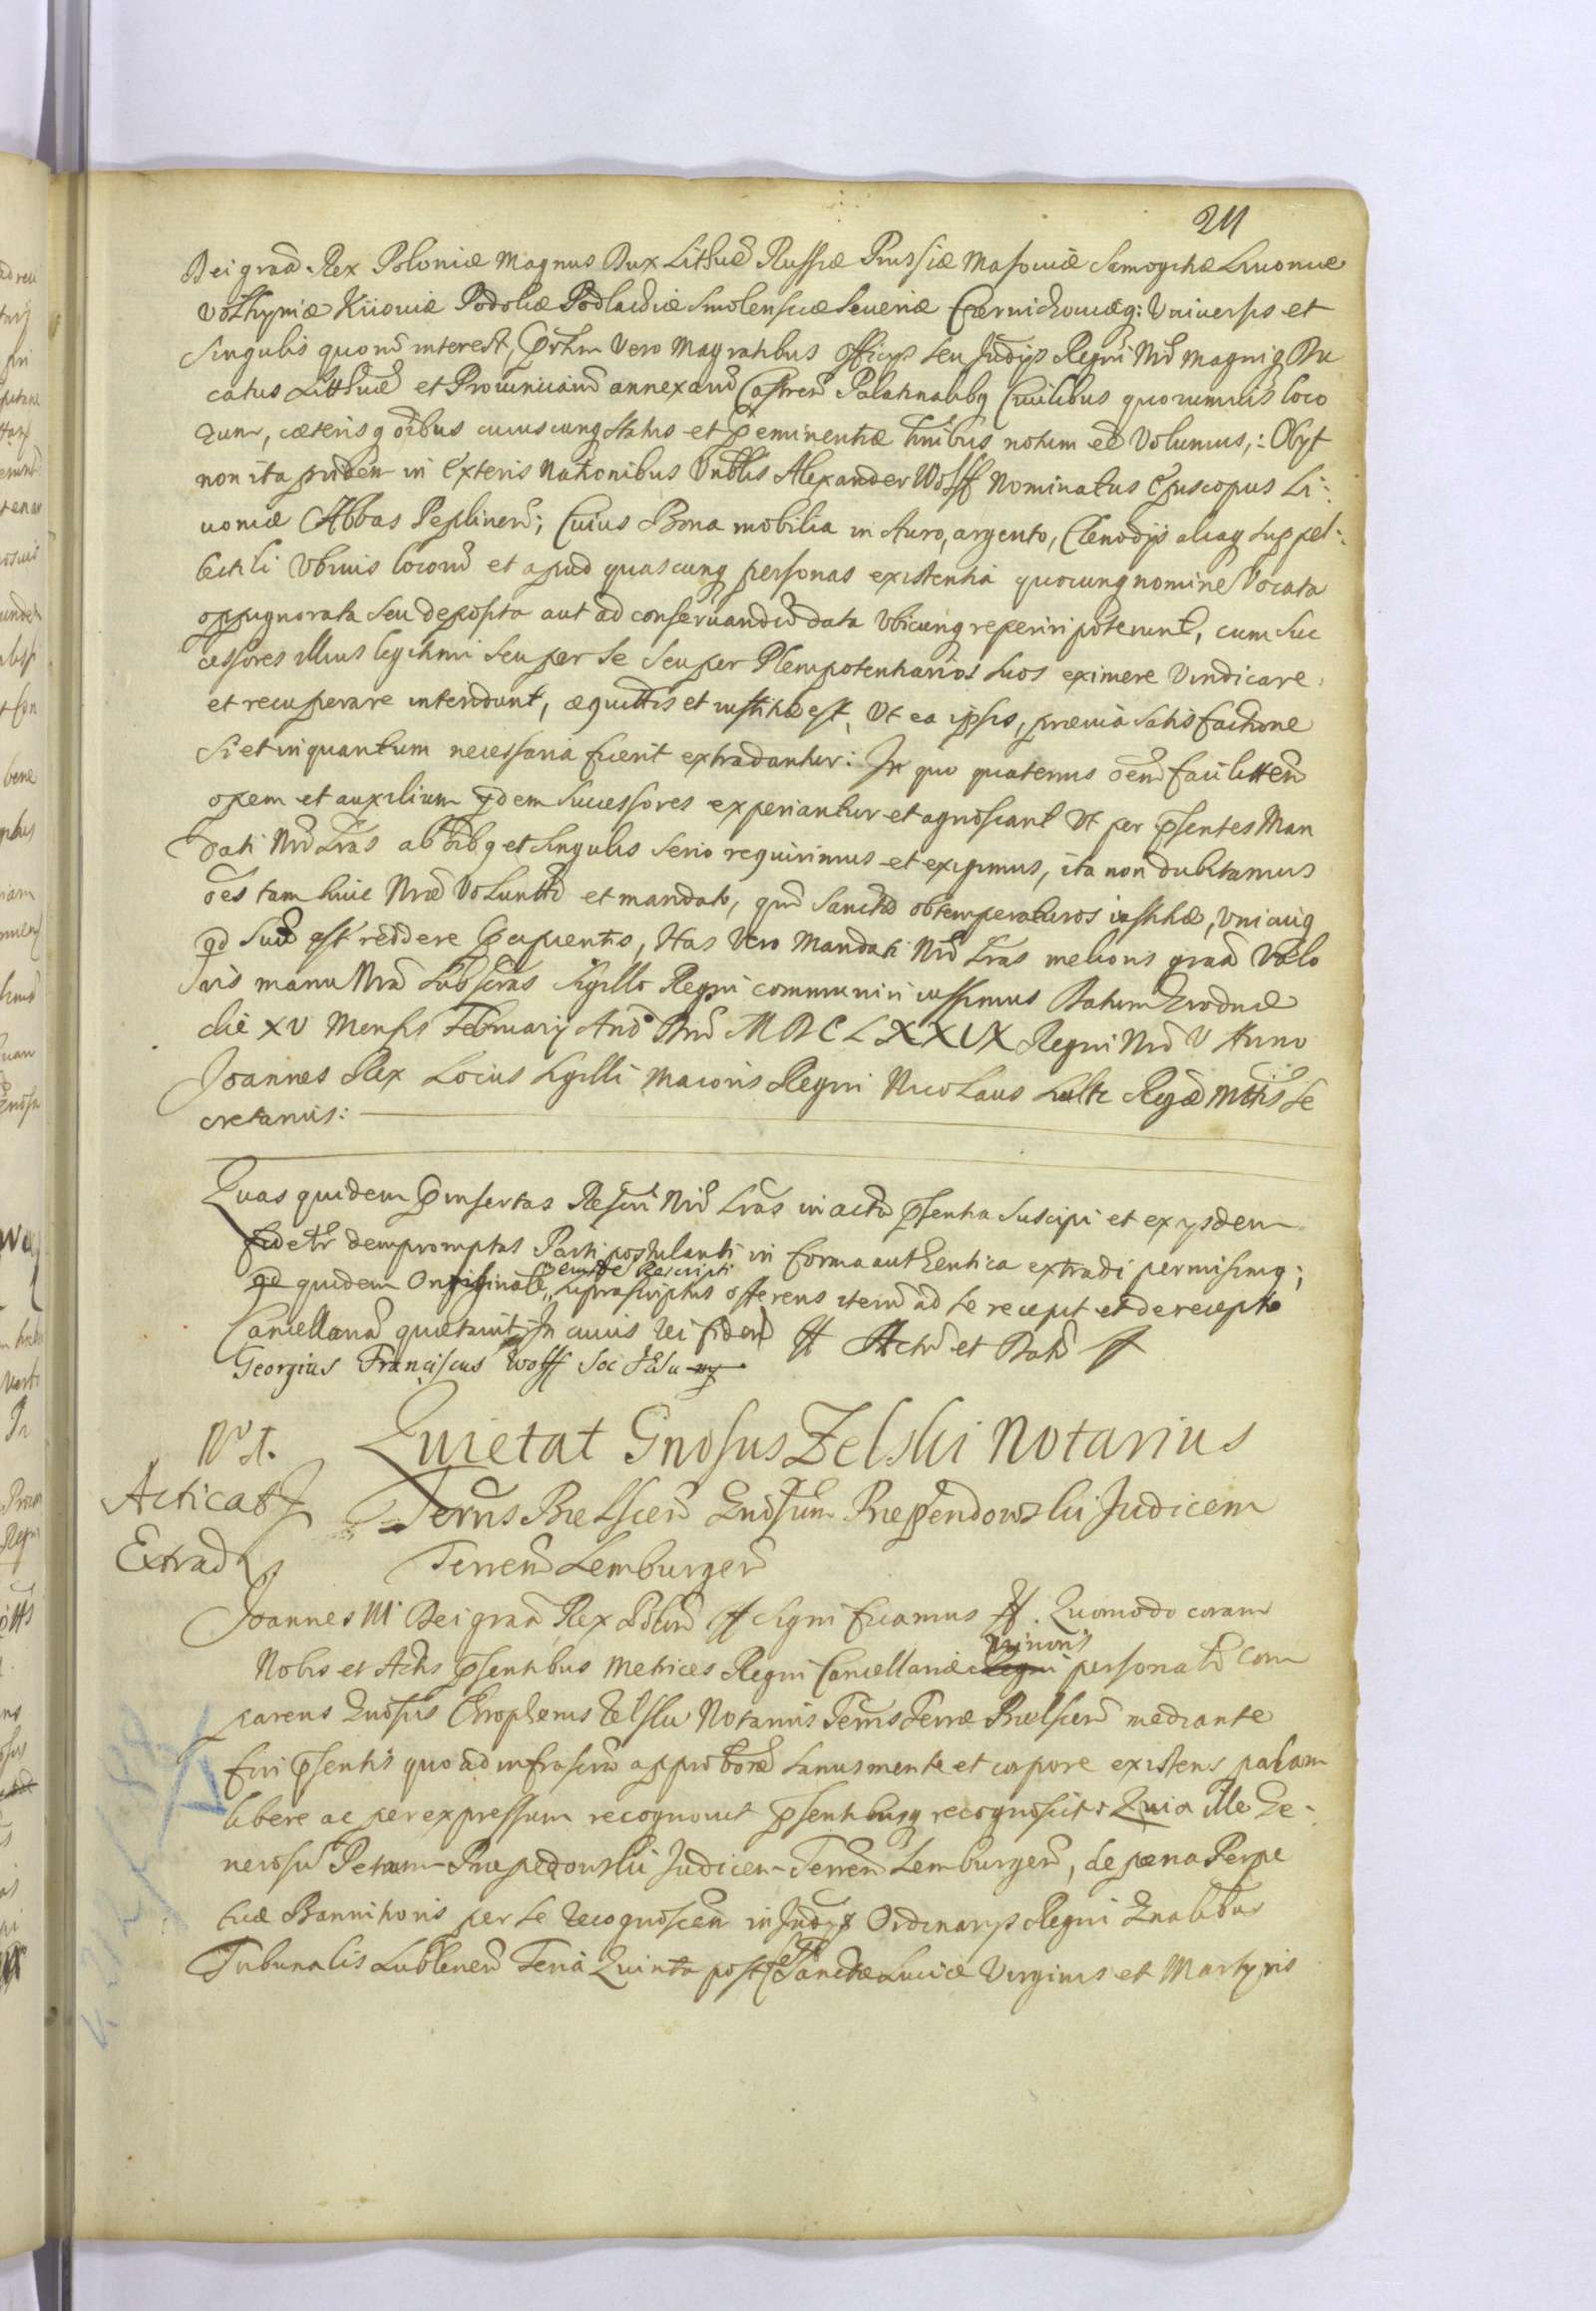 211
Dei graã Rex Poloniæ Magnus Dux Lithuæ Russiæ Prussiæ Masouiæ Samogitiæ Liuoniæ
Volhyniæ Kiiouiæ Podoliæ Podlachiæ Smolensciæ Seueriæ Czernichouiæq: Vniuersis et
Singulis quorũ interest, Pr̃tim Vero Magratibus officijs seu Judijs Regni Nrĩ Magniq Du
catus Litthuæ et Prouinciarũ annexarũ Castreñ Palatinalibq Ciuilibus quorumuis loco
rum, cæterisq oĩbus cuiuscunq status et P̃eminentiæ hõibus notum eẽ Volumus,: Obijt
non ita pridem in Exteris Nationibus Vnblis Alexander Wolff Nominatus Episcopus Li:
uoniæ Abbas Peplineñ; Cuius Bona mobilia in Auro, argento, Clenodijs aliaq suppel:
lectili Vbiuis locorũ et apud quascunq personas existentia quocunq nomine Vocata
oppignorata seu deposita aut ad conseruandũ data Vbicunq reperiri poterunt, cum Suc
cessores illius legitimi seu per se seu per Plenipotentiarios suos eximere Vindicare
et recuperare intendunt, æquittis et iustitiæ est, Vt ea ipsis, præuia satisfactione
Si et inquantum necessaria fuerit extradantur: In quo quatenus oẽm facilittẽm
opem et auxilium ijdem Successores experiantur et agnoscant Vt per p̃sentes Man
dati Nrĩ Lrãs ab oĩbq et singulis serio requirimus et exigimus, ita non dubitamus
oẽs tam huic Nræ Voluntti et mandato, quã Sanctæ obtemperaturos iustitiæ, Vnicuiq
qd Suũ est reddere P̃cipientis, Has Vero Mandati Nrĩ Lrãs melioris graã Valo
ris manu Nrã Subscrãs Sigillo Regni communiri iussimus Datum Grodnæ
die XV Mensis February Anõ Dnĩ MDCLXXIX Regni Nrĩ V Anno
Joannes Rex Locus Sigilli Maioris Regni Nicolaus Sultz Regæ Mttis Se
cretarius:
Quas quidem P̃insertas Rescri Nrĩ Lrãs in acta p̃sentia suscipi et ex ijsdem
fidetr̃ depromptas Parti postulanti in forma authentica extradi permisimq;
qd quidem Originale eiusdẽ Rescripti suprascriptus offerens iterũ ad se recepit et de recepto
Cancellariã quietauit In cuius rei fidem # Actũ et Datũ #
Georgius Franciscus Wolff Soc Jesu mp
Nrt.
Acticat
Extrad
Quietat Gnosus Zelski Notarius
Terrũs Bielsceñ Gnosum Przependowski Judicem
Terreñ Lemburgeñ
Joannes III Dei graã Rex Poloñ # significamus #. Quomodo coram
Nobis et Actis p̃sentibus Metrices Regni Cancellariæ Regni Minoris personalr̃ com
parens Gnosus Chrophorus Zelski Notarius Terrũs Terræ Bielsceñ mediante
sui p̃sentis quoad infrascrta approbõne sanus mente et corpore existens palam
libere ac per expressum recognouit p̃sentibusq recognoscit: Quia ille Ge
nerosũ Petrum Przepedowski Judicem Terreñ Lemburgeñ, de pæna Perpe
tuæ Bannitionis per se Recognosceñ in Judijs Ordinarijs Regni Gnalibus
Tribunalis Lublineñ Feria Quinta post Festũ Sanctæ Luciæ Virginis et Martyris